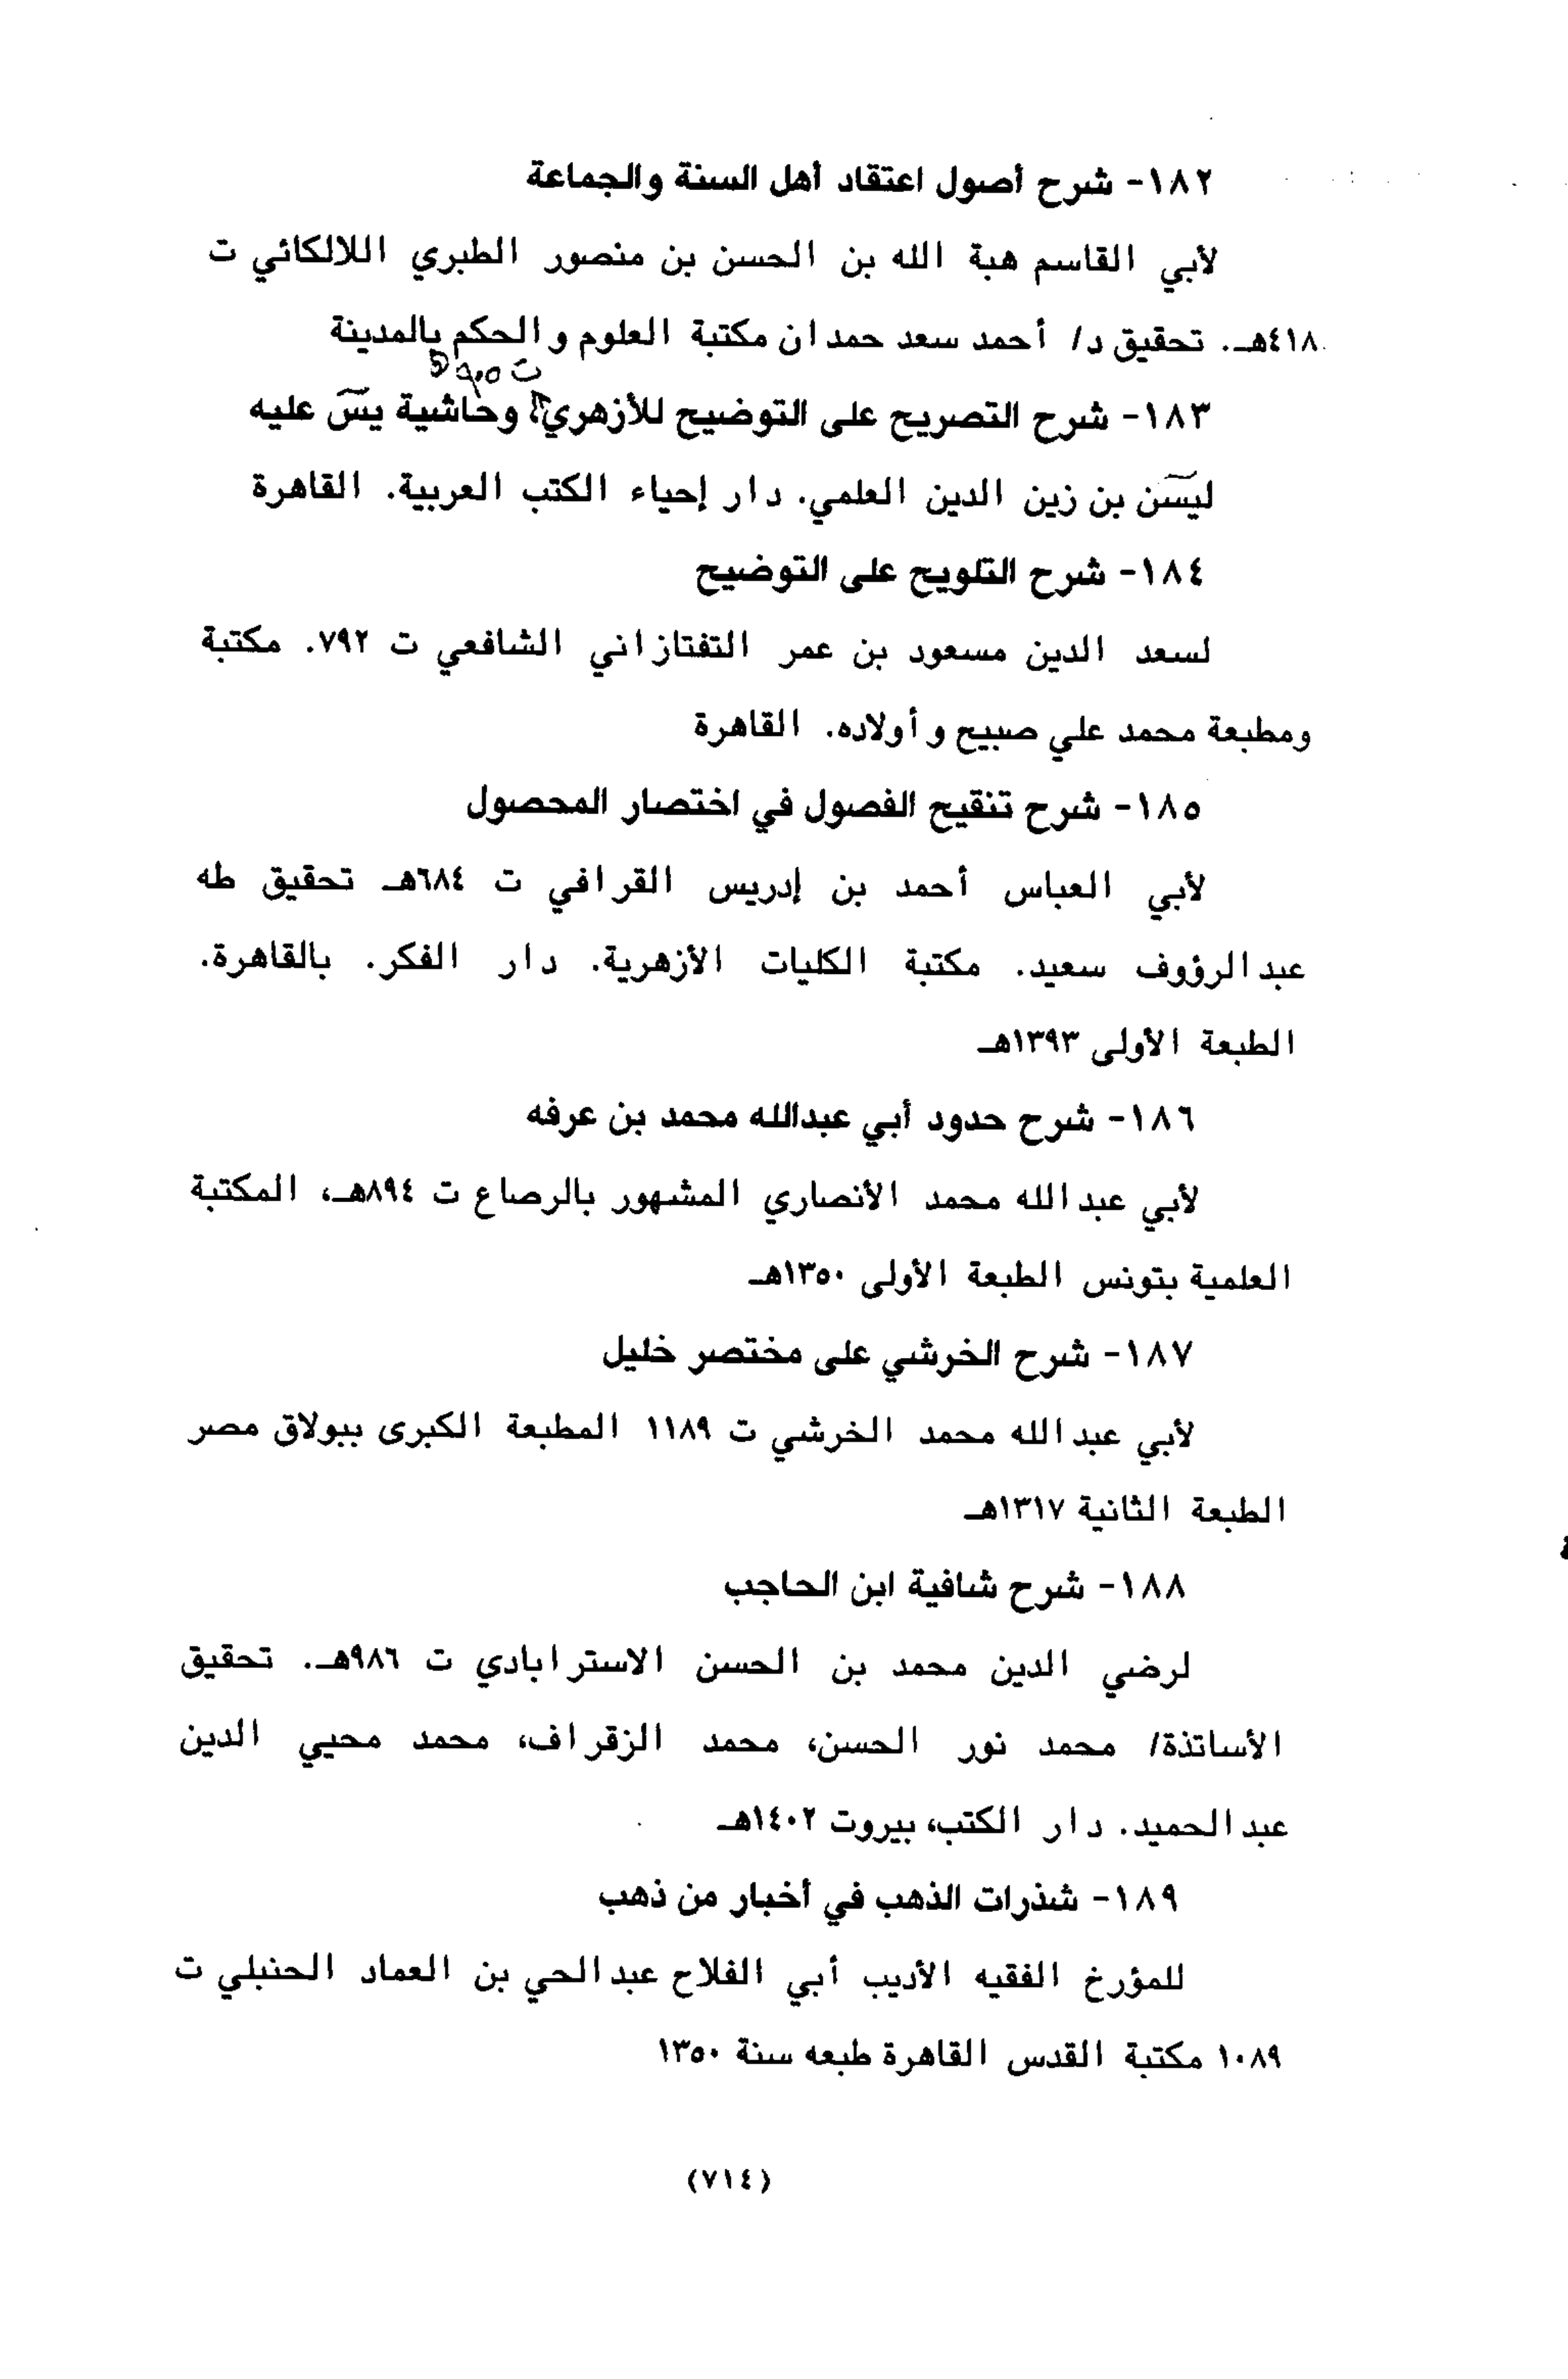 ١٨٢- شرح أصول اعتقاد أهل السنة والجماعة
لأبي القاسم هبة الله بن الحسن بن منصور الطبري اللالكائي ت
٤١٨هـ. تحقيق د/ أحمد سعد حمدان مكتبة العلوم والحكم بالمدينة
ت ٩٠٥ هـ
١٨٣- شرح التصريح على التوضيح للأزهري وحاشية يسّ عليه
ليسّن بن زين الدين العلمي. دار إحياء الكتب العربية. القاهرة
١٨٤- شرح التلويح على التوضيح
لسعد الدين مسعود بن عمر التفتازاني الشافعي ت ٧٩٢. مكتبة
ومطبعة محمد علي صبيح وأولاده. القاهرة
١٨٥- شرح تنقيح الفصول في اختصار المحصول
لأبي العباس أحمد بن إدريس القرافي ت ٦٨٤هـ تحقيق طه
عبدالرؤوف سعيد. مكتبة الكليات الأزهرية. دار الفكر. بالقاهرة.
الطبعة الأولى ١٣٩٣هـ
١٨٦- شرح حدود أبي عبدالله محمد بن عرفه
لأبي عبدالله محمد الأنصاري المشهور بالرصاع ت ٨٩٤هـ، المكتبة
العلمية بتونس الطبعة الأولى ١٣٥٠هـ
١٨٧- شرح الخرشي على مختصر خليل
لأبي عبدالله محمد الخرشي ت ١١٨٩ المطبعة الكبرى ببولاق مصر
الطبعة الثانية ١٣١٧هـ
١٨٨- شرح شافية ابن الحاجب
لرضي الدين محمد بن الحسن الاسترابادي ت ٩٨٦هـ. تحقيق
الأساتذة/ محمد نور الحسن، محمد الزقراف، محمد محيي الدين
عبدالحميد. دار الكتب، بيروت ١٤٠٢هـ
١٨٩- شذرات الذهب في أخبار من ذهب
للمؤرخ الفقيه الأديب أبي الفلاح عبدالحي بن العماد الحنبلي ت
١٠٨٩ مكتبة القدس القاهرة طبعه سنة ١٣٥٠
(٧١٤)